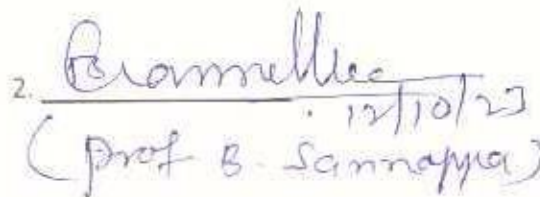 2.
12/10/23
(Prof B. Sannappa)